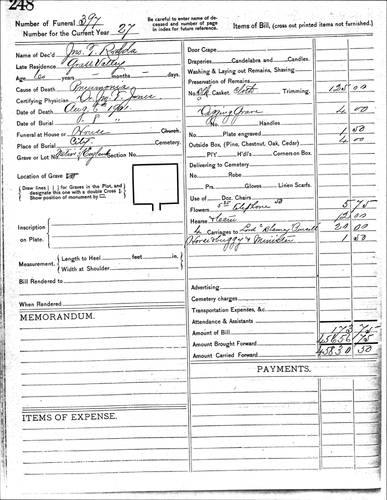 248
Number of Funeral 397
Number for the Current Year 27
Be carefull to enter name of de-
ceased and number of page
in index for future reference.
Items of Bill, (cross out printed items not furnished.)
Name of Dec'd Jno. T.
Late Residence Grass Valley
Age, 60 years - months - days.
Cause of Death Pneumonia
Certifying Physician Dr. Jones
Date of Death Aug. 6th 1901
Date of Burial " 8 "
Funeral at House or House Church.
Place of Burial City Cemetery.
Grave or Lot No. Section No.
Location of Grave
Draw lines | | for Graves in the Plot, and
designate this one with a double Cross
Show position of monument by
Inscription
on Plate.
Measurement. Length to Heel feet in.
Width at Shoulder
Bill Rendered to
When Rendered
MEMORANDUM.
ITEMS OF EXPENSE.
Door Crape
Draperies, Candelabra and Candles.
Washing & Laying out Remains, Shaving
Preservation of Remains
No. Casket Cloth Trimming. 125 00
Digging Grave 4 00
No. Handles
Plate engraved 1 50
Outside Box, (Pine, Chestnut, Oak, Cedar) 4 00
P|Y H'd|'s Corners on Box.
Delivering to Cemetery
No. Robe
Prs. Gloves Linien Scarfs.
Use of Doz. Chairs
Flowers 5 25 Telephone 50 5 75
Hearse 12 00
4 Carriages to 20 00
Horse & Buggy & Minister 1 50
Advertising
Cemetery charges
Transportation Expenses, &c.
Attendance & Assistants
Amount of Bill 173 75
Amount Brought Forward 45656 75
Amount Carried Forward 45830 50
PAYMENTS.